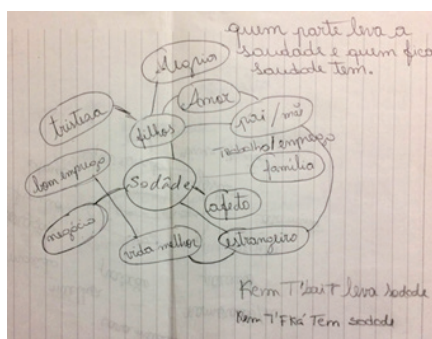 quem parte leva a
saudade e quem fica
saudade tem.
Alegria
Amor
tristeza
filhos
pai/mãe
Trabalho/emprego
família
bom emprego
Sodade
afeto
negócio
vida melhor
estrangeiro
Kem T'bai T leva sodade
Kem T'Fká Tem sodade